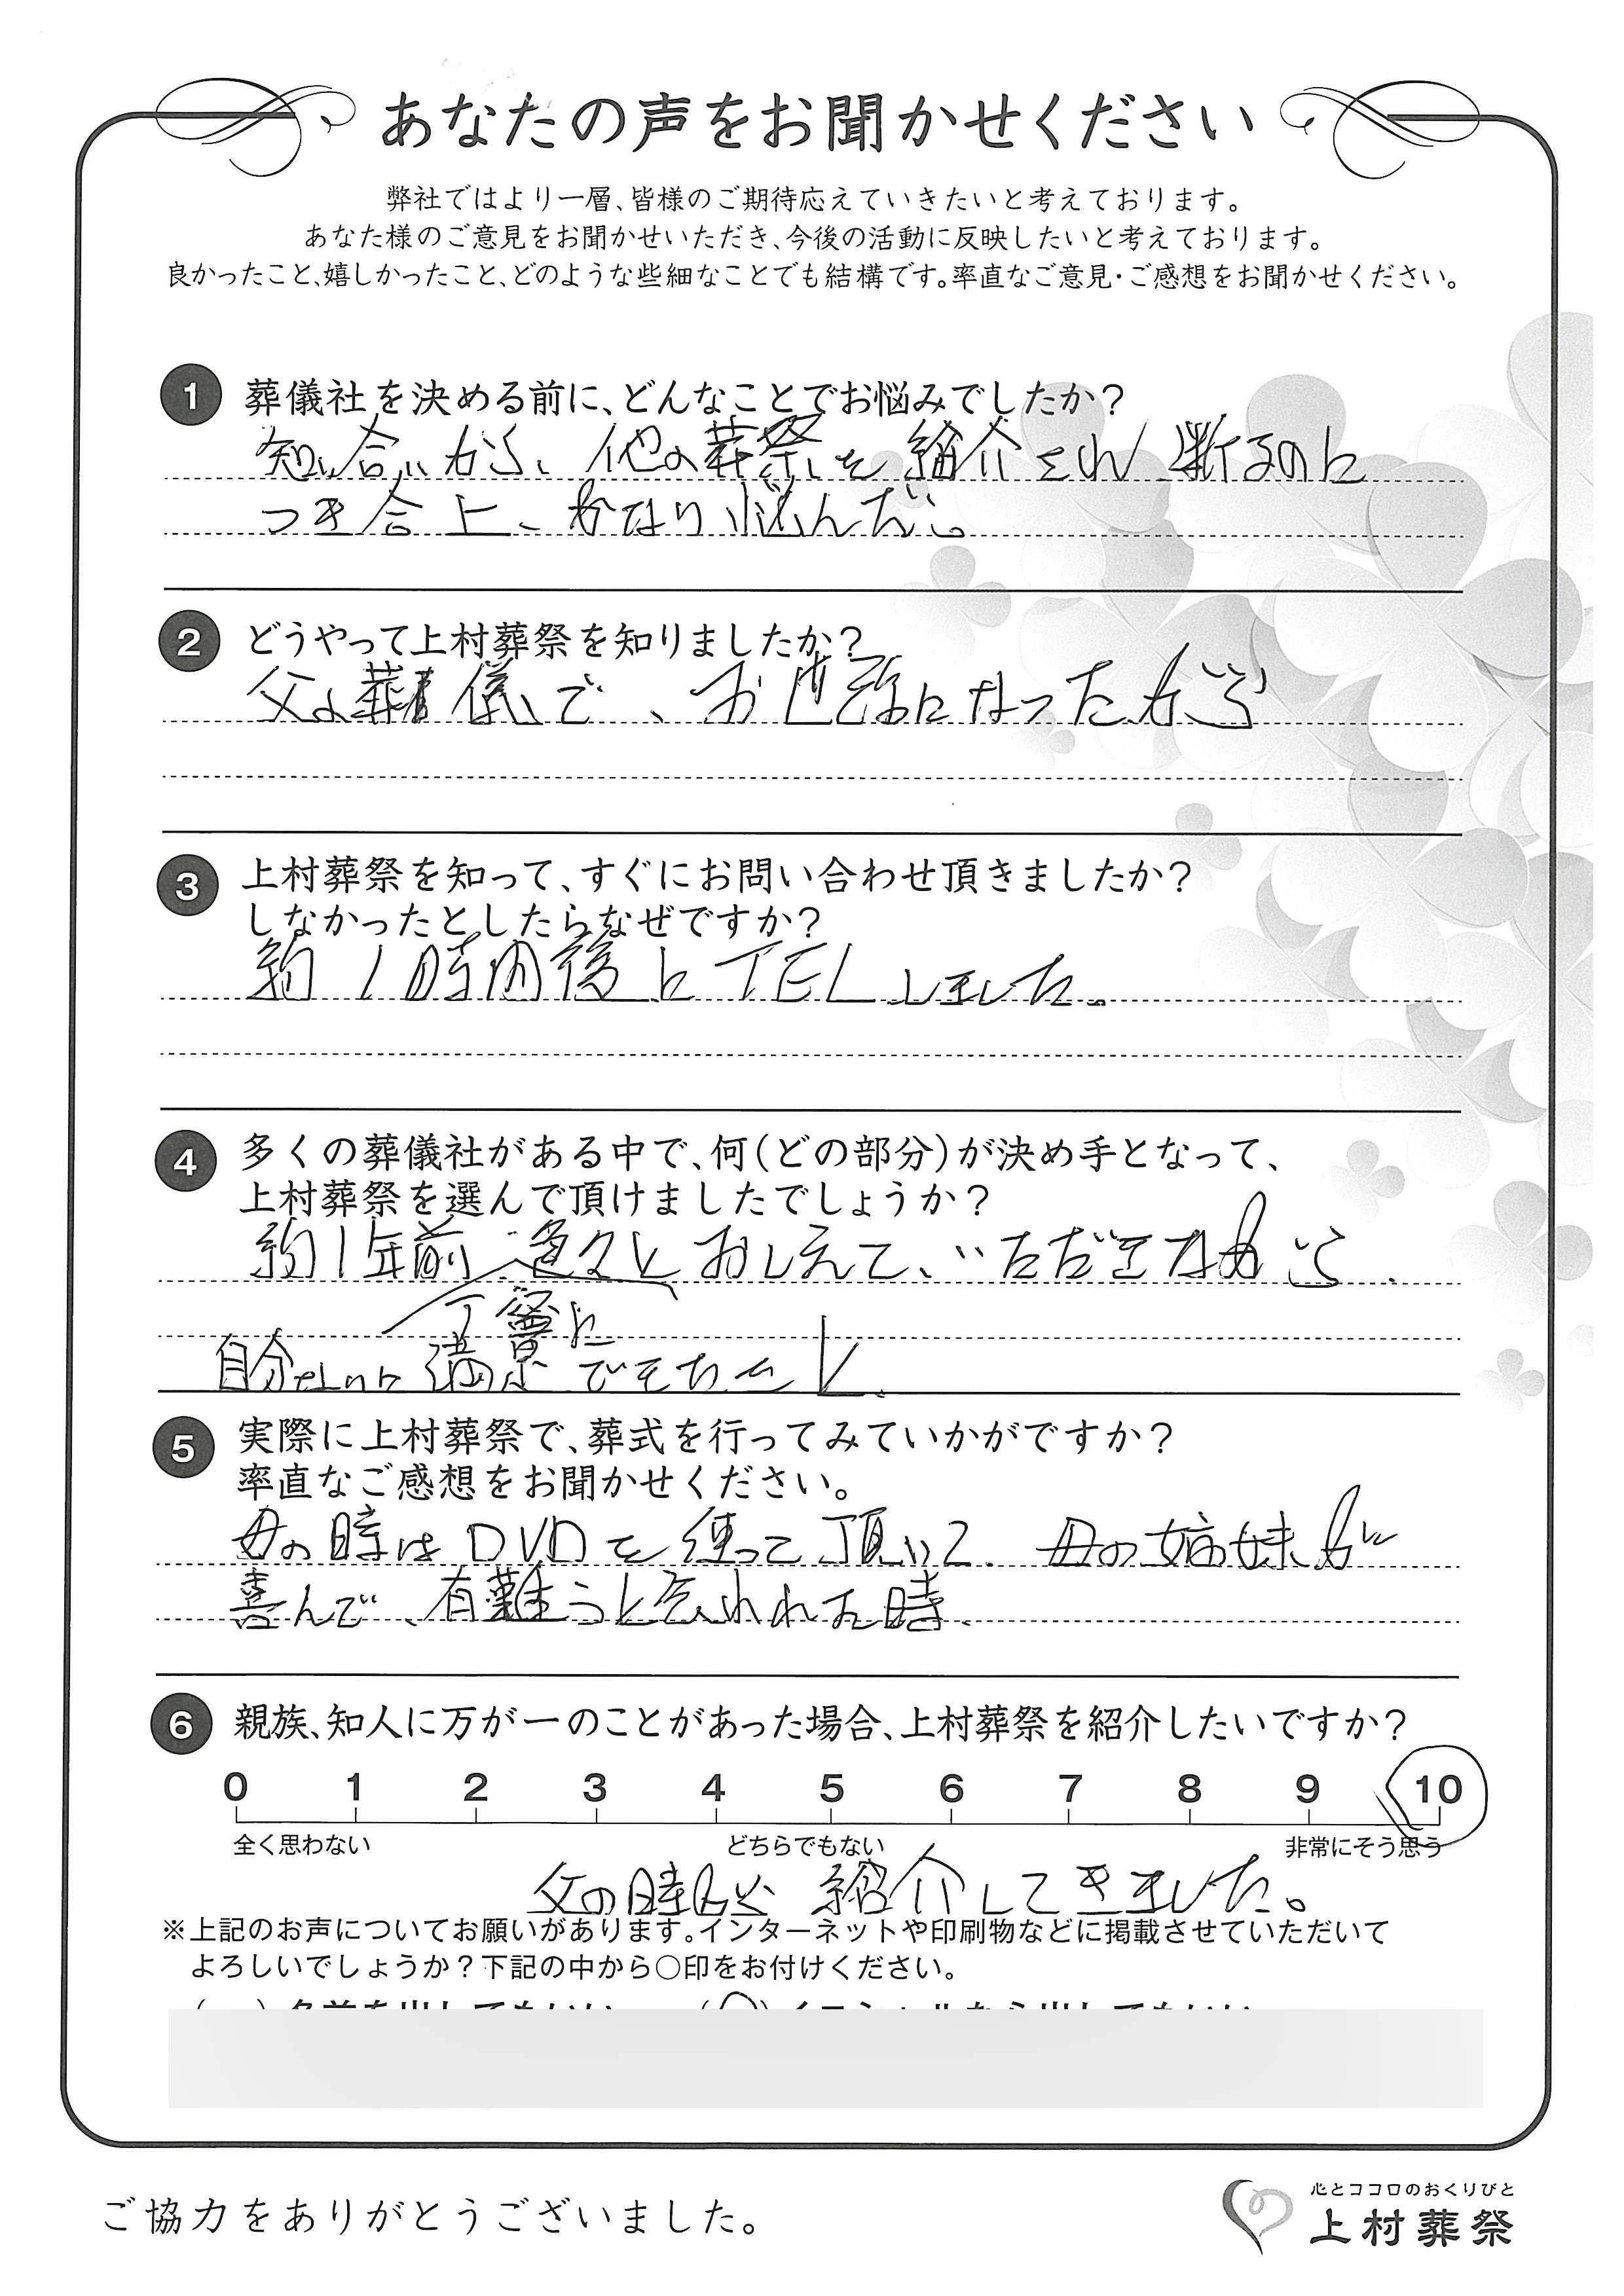 あなたの声をお聞かせください
弊社ではより一層、皆様のご期待応えていきたいと考えております。
あなた様のご意見をお聞かせいただき、今後の活動に反映したいと考えております。
良かったこと、嬉しかったこと、どのような些細なことでも結構です。率直なご意見・ご感想をお聞かせください。
1 葬儀社を決める前に、どんなことでお悩みでしたか?
知い合いから、他の葬祭を紹介され断るのに
つき合上、かなり悩んだ。
2 どうやって上村葬祭を知りましたか?
父の葬儀で、お世話になったから
3 上村葬祭を知って、すぐにお問い合わせ頂きましたか?
しなかったとしたらなぜですか?
約1時間後にTELしました。
4 多くの葬儀社がある中で、何(どの部分)が決め手となって、
上村葬祭を選んで頂けましたでしょうか?
約1年前、色々と おしえて、いただき
丁寧に
自分なりに満足できました
5 実際に上村葬祭で、葬式を行ってみていかがですか?
率直なご感想をお聞かせください。
母の時はDVDを使って頂いて、母の姉妹が
喜んで、有難うと言われた時、
6 親族、知人に万が一のことがあった場合、上村葬祭を紹介したいですか?
0 1 2 3 4 5 6 7 8 9 10
全く思わない どちらでもない 非常にそう思う
父の時 紹介してきました。
※上記のお声についてお願いがあります。インターネットや印刷物などに掲載させていただいて
よろしいでしょうか?下記の中から○印をお付けください。
ご協力をありがとうございました。
心とココロのおくりびと
上村葬祭